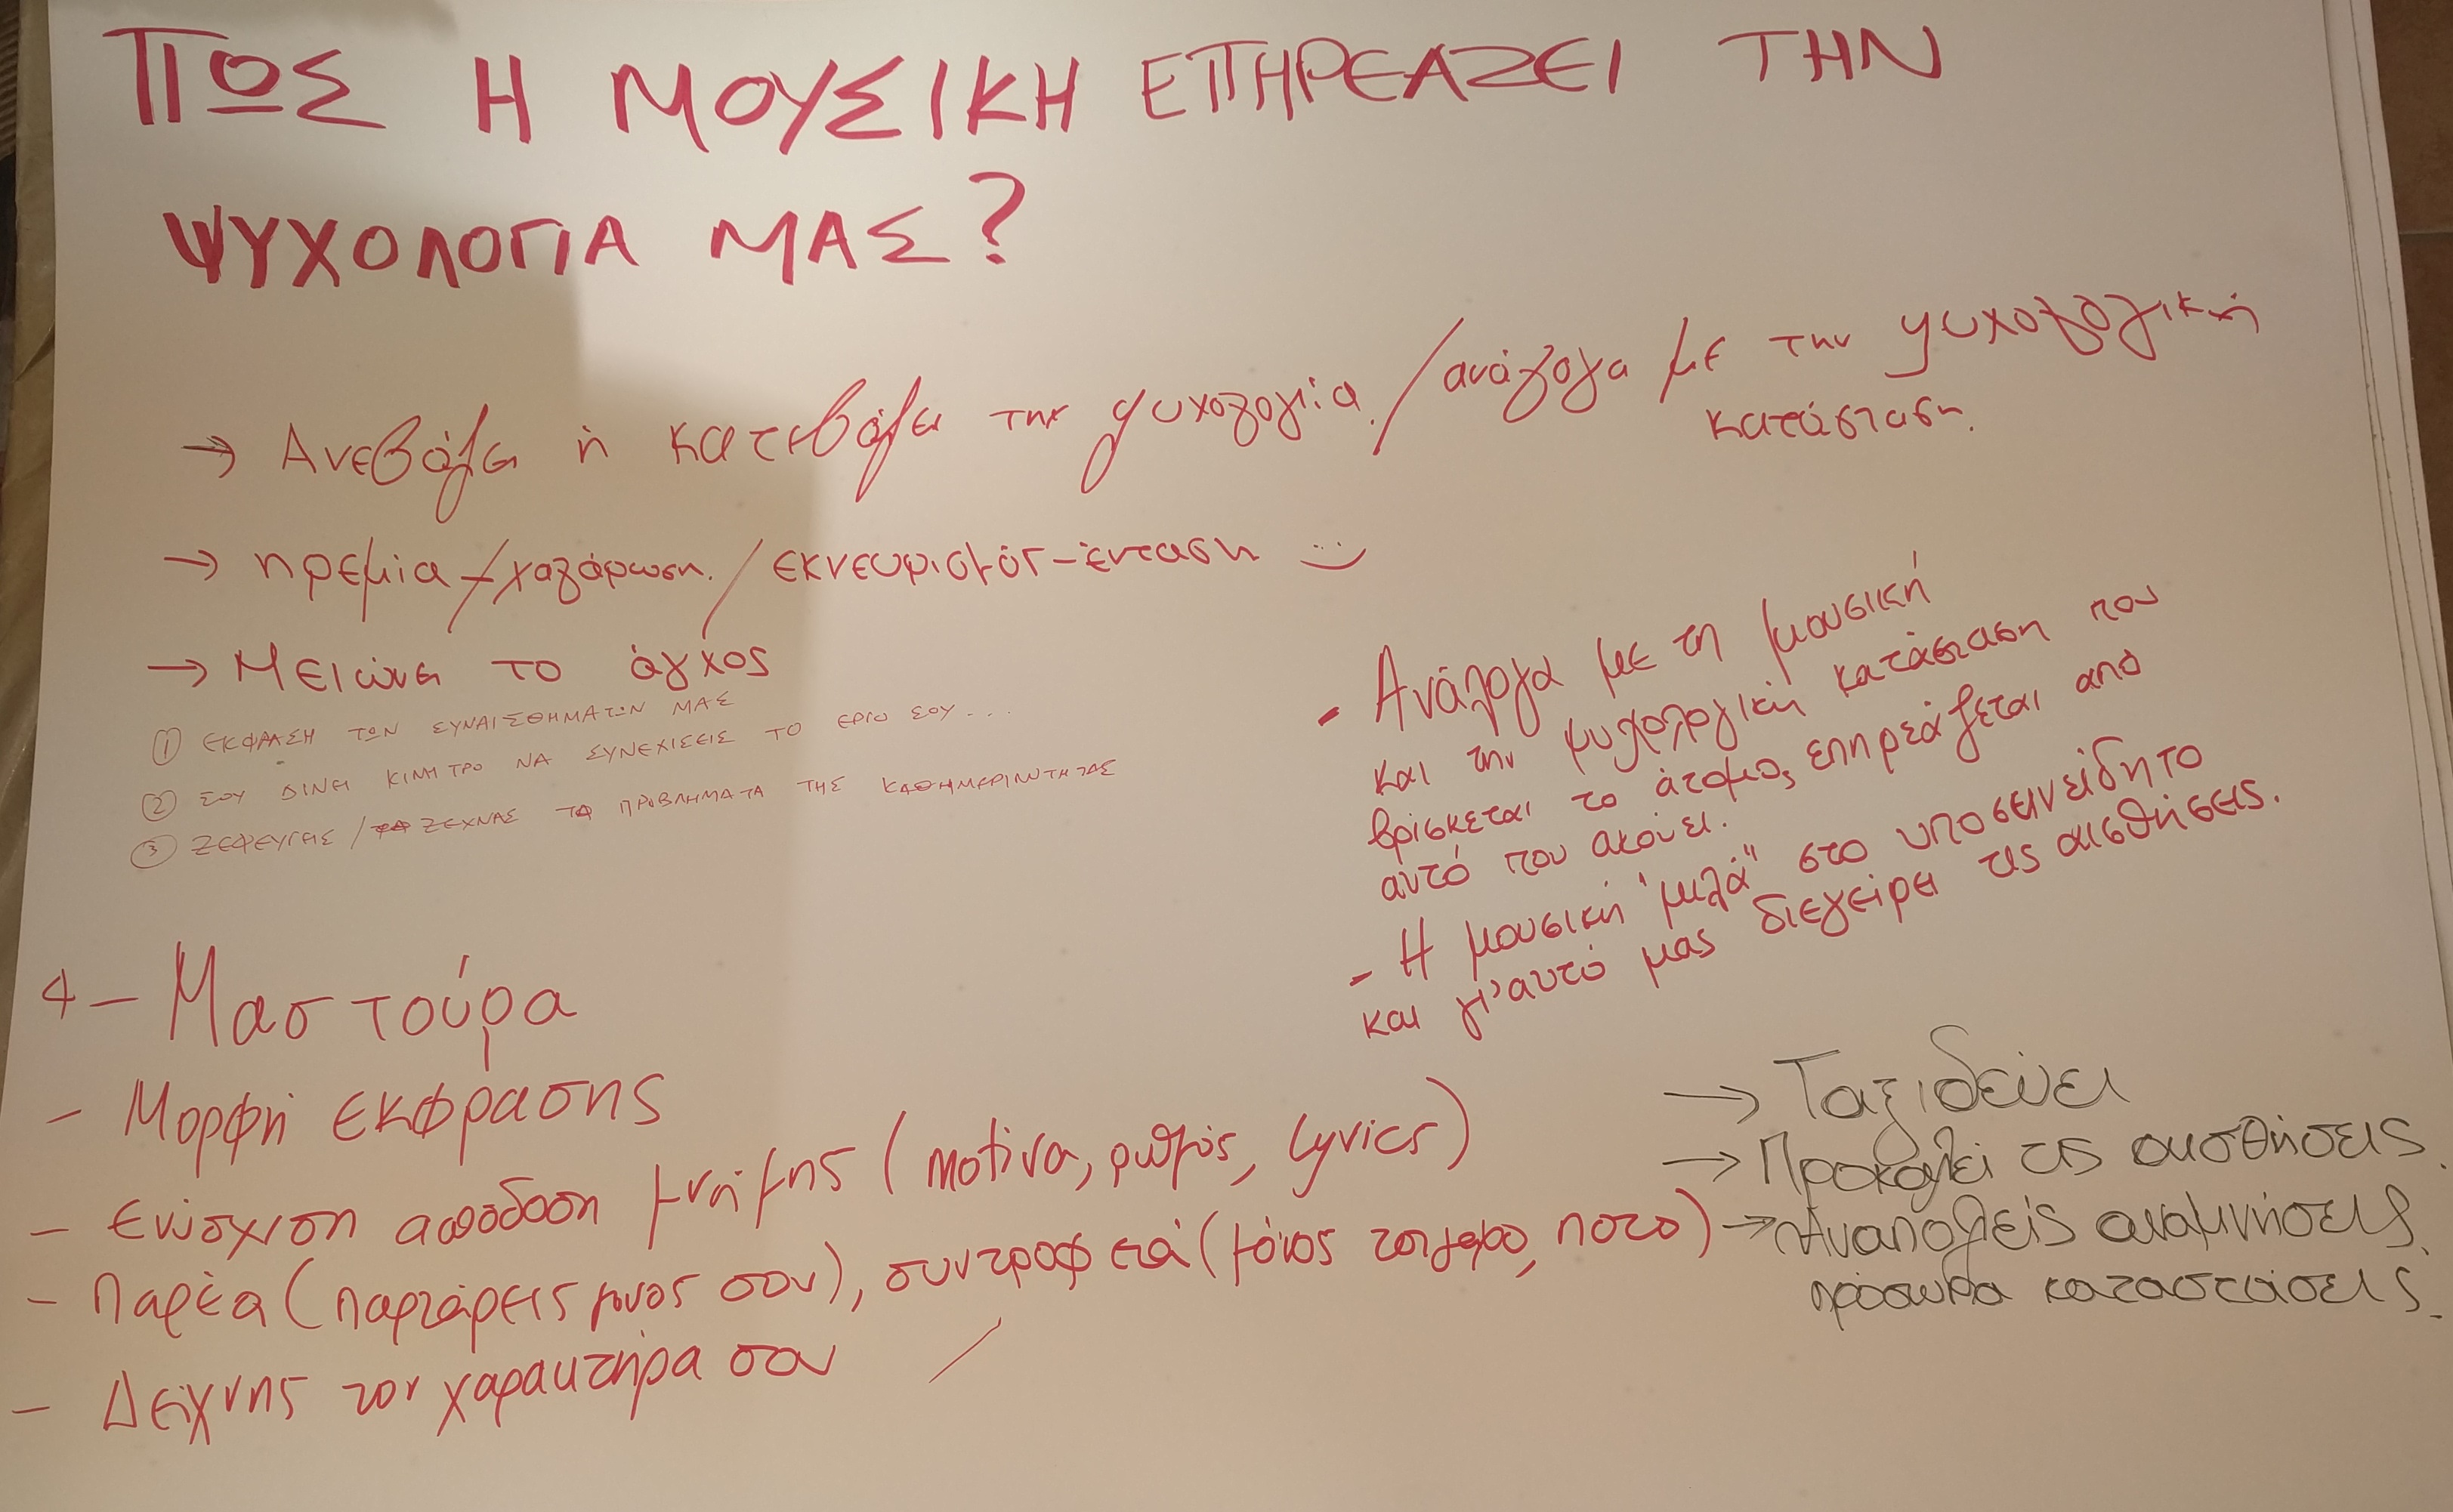 ΠΩΣ Η ΜΟΥΣΙΚΗ ΕΠΗΡΕΑΖΕΙ ΤΗΝ
ΨΥΧΟΛΟΓΙΑ ΜΑΣ?
→ Ανεβάζει ή κατεβάζει την ψυχολογία. / ανάλογα με την ψυχολογική
κατάσταση.
→ ηρεμία / χαλάρωση. / εκνευρισμός - ένταση :)
→ Μειώνει το άγχος
① ΕΚΦΡΑΣΗ ΤΩΝ ΣΥΝΑΙΣΘΗΜΑΤΩΝ ΜΑΣ
② ΣΟΥ ΔΙΝΕΙ ΚΙΝΗΤΡΟ ΝΑ ΣΥΝΕΧΙΣΕΙΣ ΤΟ ΕΡΓΟ ΣΟΥ...
③ ΞΕΦΕΥΓΕΙΣ / ΞΕΧΝΑΣ ΤΑ ΠΡΟΒΛΗΜΑΤΑ ΤΗΣ ΚΑΘΗΜΕΡΙΝΟΤΗΤΑΣ
- Ανάλογα με τη μουσική
και την ψυχολογική κατάσταση που
βρίσκεται το άτομο, επηρεάζεται από
αυτό που ακούει.
- Η μουσική "μιλά" στο υποσεινείδητο
και γι'αυτό μας διεγείρει τις αισθήσεις.
4 - Μαστούρα
- Μορφή εκφρασης
- Ενίσχιση απόδοση μνήμης (μοτίνα, ρυθμός, lyrics)
- Παρέα (παρτάρεις μονος σου), συντροφιά (μόνος τσιγαρο, ποτο)
- Δείχνης τον χαρακτήρα σου
→ Ταξιδεύει
→ Προκαλεί τις αισθήσεις.
→ Αναπολείς αναμνήσεις,
πρόσωπα καταστάσεις.